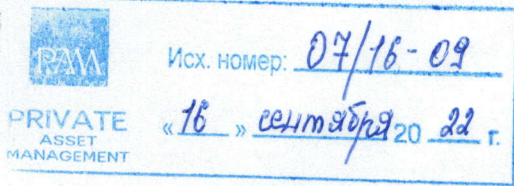 PAM
PRIVATE
ASSET
MANAGEMENT
Исх. номер: 07/16-09
«16» сентября 2022 г.